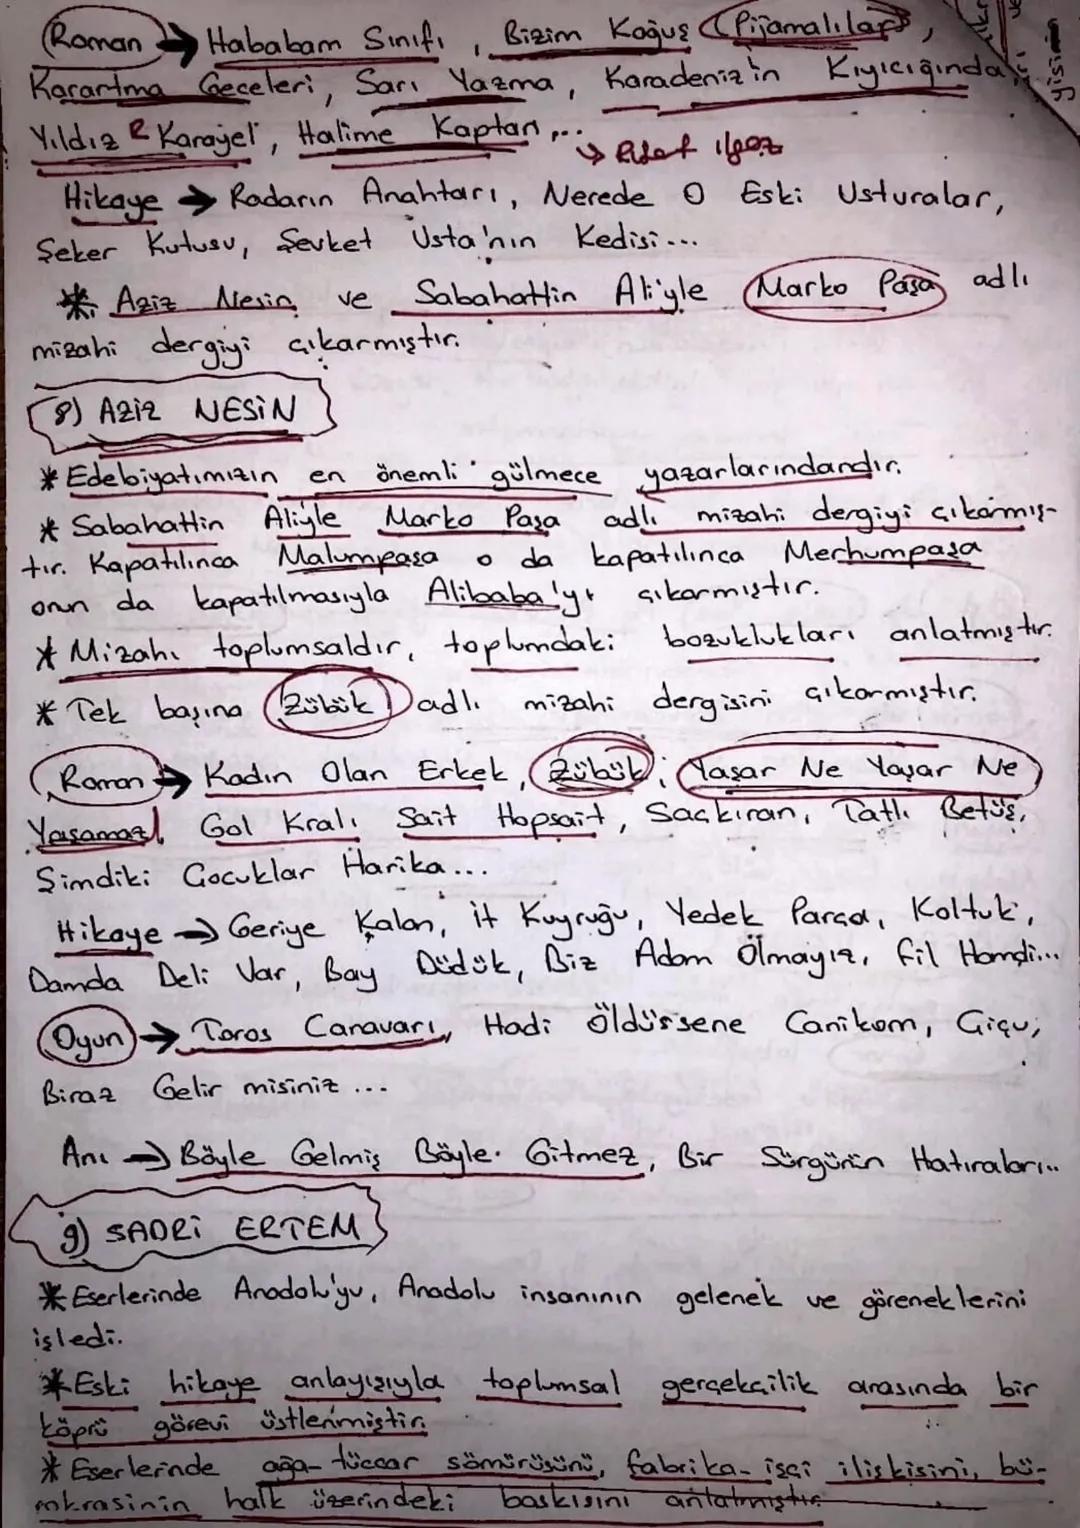 Roman → Hababam Sınıfı, Bizim Koğuş (Pijamalılar),
Karartma Geceleri, Sarı Yazma, Karadeniz'in Kıyıcığında
Yıldız Karayel, Halime Kaptan,...
→ Rıfat Ilgaz
Hikaye → Radarın Anahtarı, Nerede O Eski Usturalar,
Şeker Kutusu, Şevket Usta'nın Kedisi...
* Aziz Nesin ve Sabahattin Ali'yle Marko Paşa adlı
mizahi dergiyi çıkarmıştır.
8) AZİZ NESİN
* Edebiyatımızın en önemli gülmece yazarlarındandır.
* Sabahattin Aliyle Marko Paşa adlı mizahi dergiyi çıkarmış-
tır. Kapatılınca Malumpaşa o da kapatılınca Merhumpaşa
onun da kapatılmasıyla Alibaba'yı çıkarmıştır.
* Mizahı toplumsaldır, toplumdaki bozuklukları anlatmıştır.
* Tek başına Zübük adlı mizahi dergisini çıkarmıştır.
Roman → Kadın Olan Erkek, Zübük, Yaşar Ne Yaşar Ne
Yaşamaz, Gol Kralı Sait Hopsait, Saçkıran, Tatlı Betüş,
Şimdiki Çocuklar Harika...
Hikaye → Geriye Kalan, İt Kuyruğu, Yedek Parça, Koltuk,
Damda Deli Var, Bay Düdük, Biz Adam Olmayız, Fil Hamdi...
Oyun → Toros Canavarı, Hadi Öldürsene Canikom, Çiçu,
Biraz Gelir misiniz ...
Anı → Böyle Gelmiş Böyle Gitmez, Bir Sürgünün Hatıraları..
9) SADRİ ERTEM
* Eserlerinde Anadolu'yu, Anadolu insanının gelenek ve göreneklerini
işledi.
* Eski hikaye anlayışıyla toplumsal gerçekçilik arasında bir
köprü görevi üstlenmiştir.
* Eserlerinde ağa-tüccar sömürüsünü, fabrika-işçi ilişkisini, bü-
rokrasinin halk üzerindeki baskısını anlatmıştır.